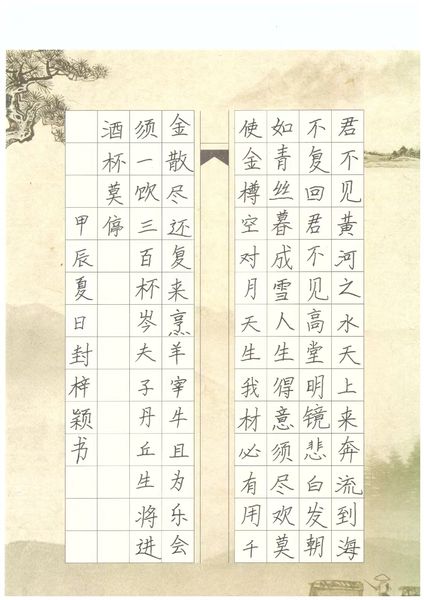 君不见黄河之水天上来奔流到海
不复回君不见高堂明镜悲白发朝
如青丝暮成雪人生得意须尽欢莫
使金樽空对月天生我材必有用千
金散尽还复来烹羊宰牛且为乐会
须一饮三百杯岑夫子丹丘生将进
酒杯莫停
甲辰夏日封梓颖书